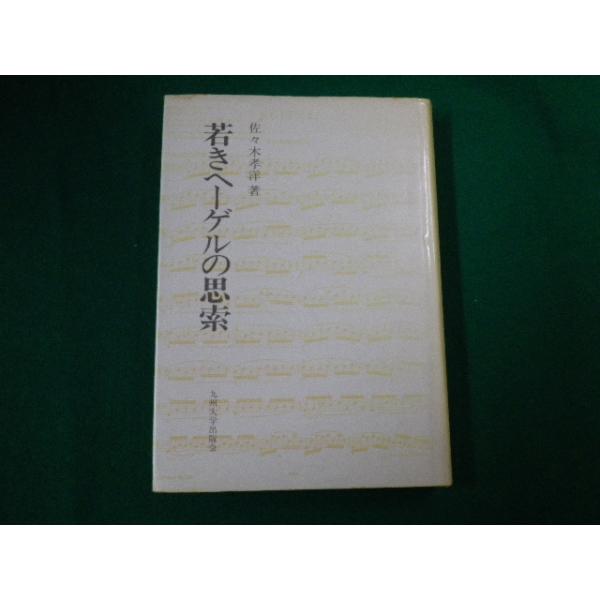 佐々木孝洋著
若きヘーゲルの思索
九州大学出版会